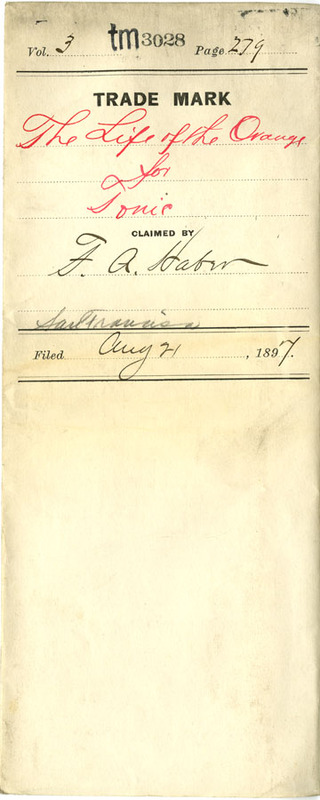 Vol. 3 tm3028 Page 279
TRADE MARK
The Life of the Orange
for
Tonic
CLAIMED BY
F. A. Haber
San Francisco
Filed Aug 21, 1897.